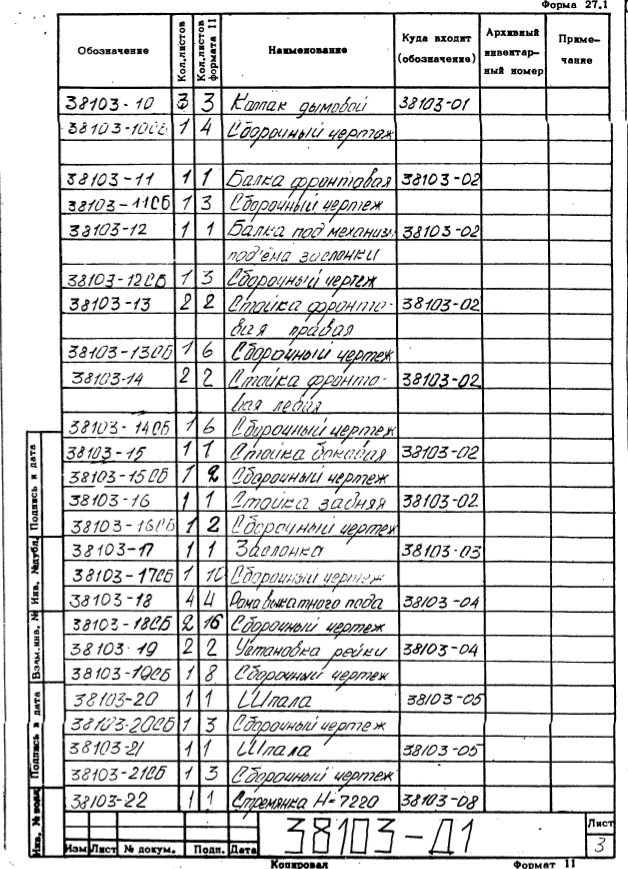 Форма 27.1
Обозначение Кол.листов Кол.листов формата 11 Наименование Куда входит (обозначение) Архивный инвентар-ный номер Приме-чание
38103-10 3 3 Колпак дымовой 38103-01
38103-10СБ 1 4 Сборочный чертеж
38103-11 1 1 Балка фронтовая 38103-02
38103-11СБ 1 3 Сборочный чертеж
38103-12 1 1 Балка под механизм 38103-02
под'ёма заслонки
38103-12СБ 1 3 Сборочный чертеж
38103-13 2 2 Стойка фронто- 38103-02
вая правая
38103-13СБ 1 6 Сборочный чертеж
38103-14 2 2 Стойка фронто- 38103-02
вая левая
38103-14СБ 1 6 Сборочный чертеж
38103-15 1 1 Стойка боковая 38103-02
38103-15СБ 1 2 Сборочный чертеж
38103-16 1 1 Стойка задняя 38103-02
38103-16СБ 1 2 Сборочный чертеж
38103-17 1 1 Заслонка 38103-03
38103-17СБ 1 10 Сборочный чертеж
38103-18 4 4 Рама выкатного пода 38103-04
38103-18СБ 2 16 Сборочный чертеж
38103-19 2 2 Установка рейки 38103-04
38103-19СБ 1 8 Сборочный чертеж
38103-20 1 1 Шпала 38103-05
38103-20СБ 1 3 Сборочный чертеж
38103-21 1 1 Шпала 38103-05
38103-21СБ 1 3 Сборочный чертеж
38103-22 1 1 Стремянка H=7220 38103-08
Инв. № подл. Подпись и дата Взам.инв. № Инв. №дубл. Подпись и дата
38103-Д1
Лист
3
Изм Лист № докум. Подп. Дата
Копировал Формат 11